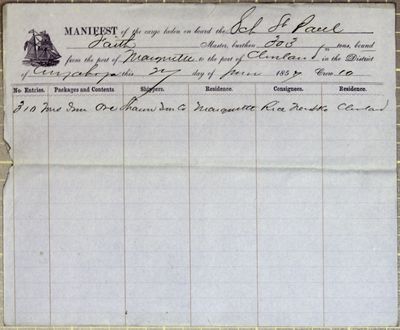 MANIFEST of the cargo laden on board the Sch St Paul
Faith Master, burthen 303 tons, bound
from the port of Marquette to the port of Cleveland in the District
of Cuyahoga this 27 day of June 1857 Crew 10
No Entries. Packages and Contents. Shippers. Residence. Consignees. Residence.
310 Tons Iron Ore Sharon Iron Co Marquette Cleveland